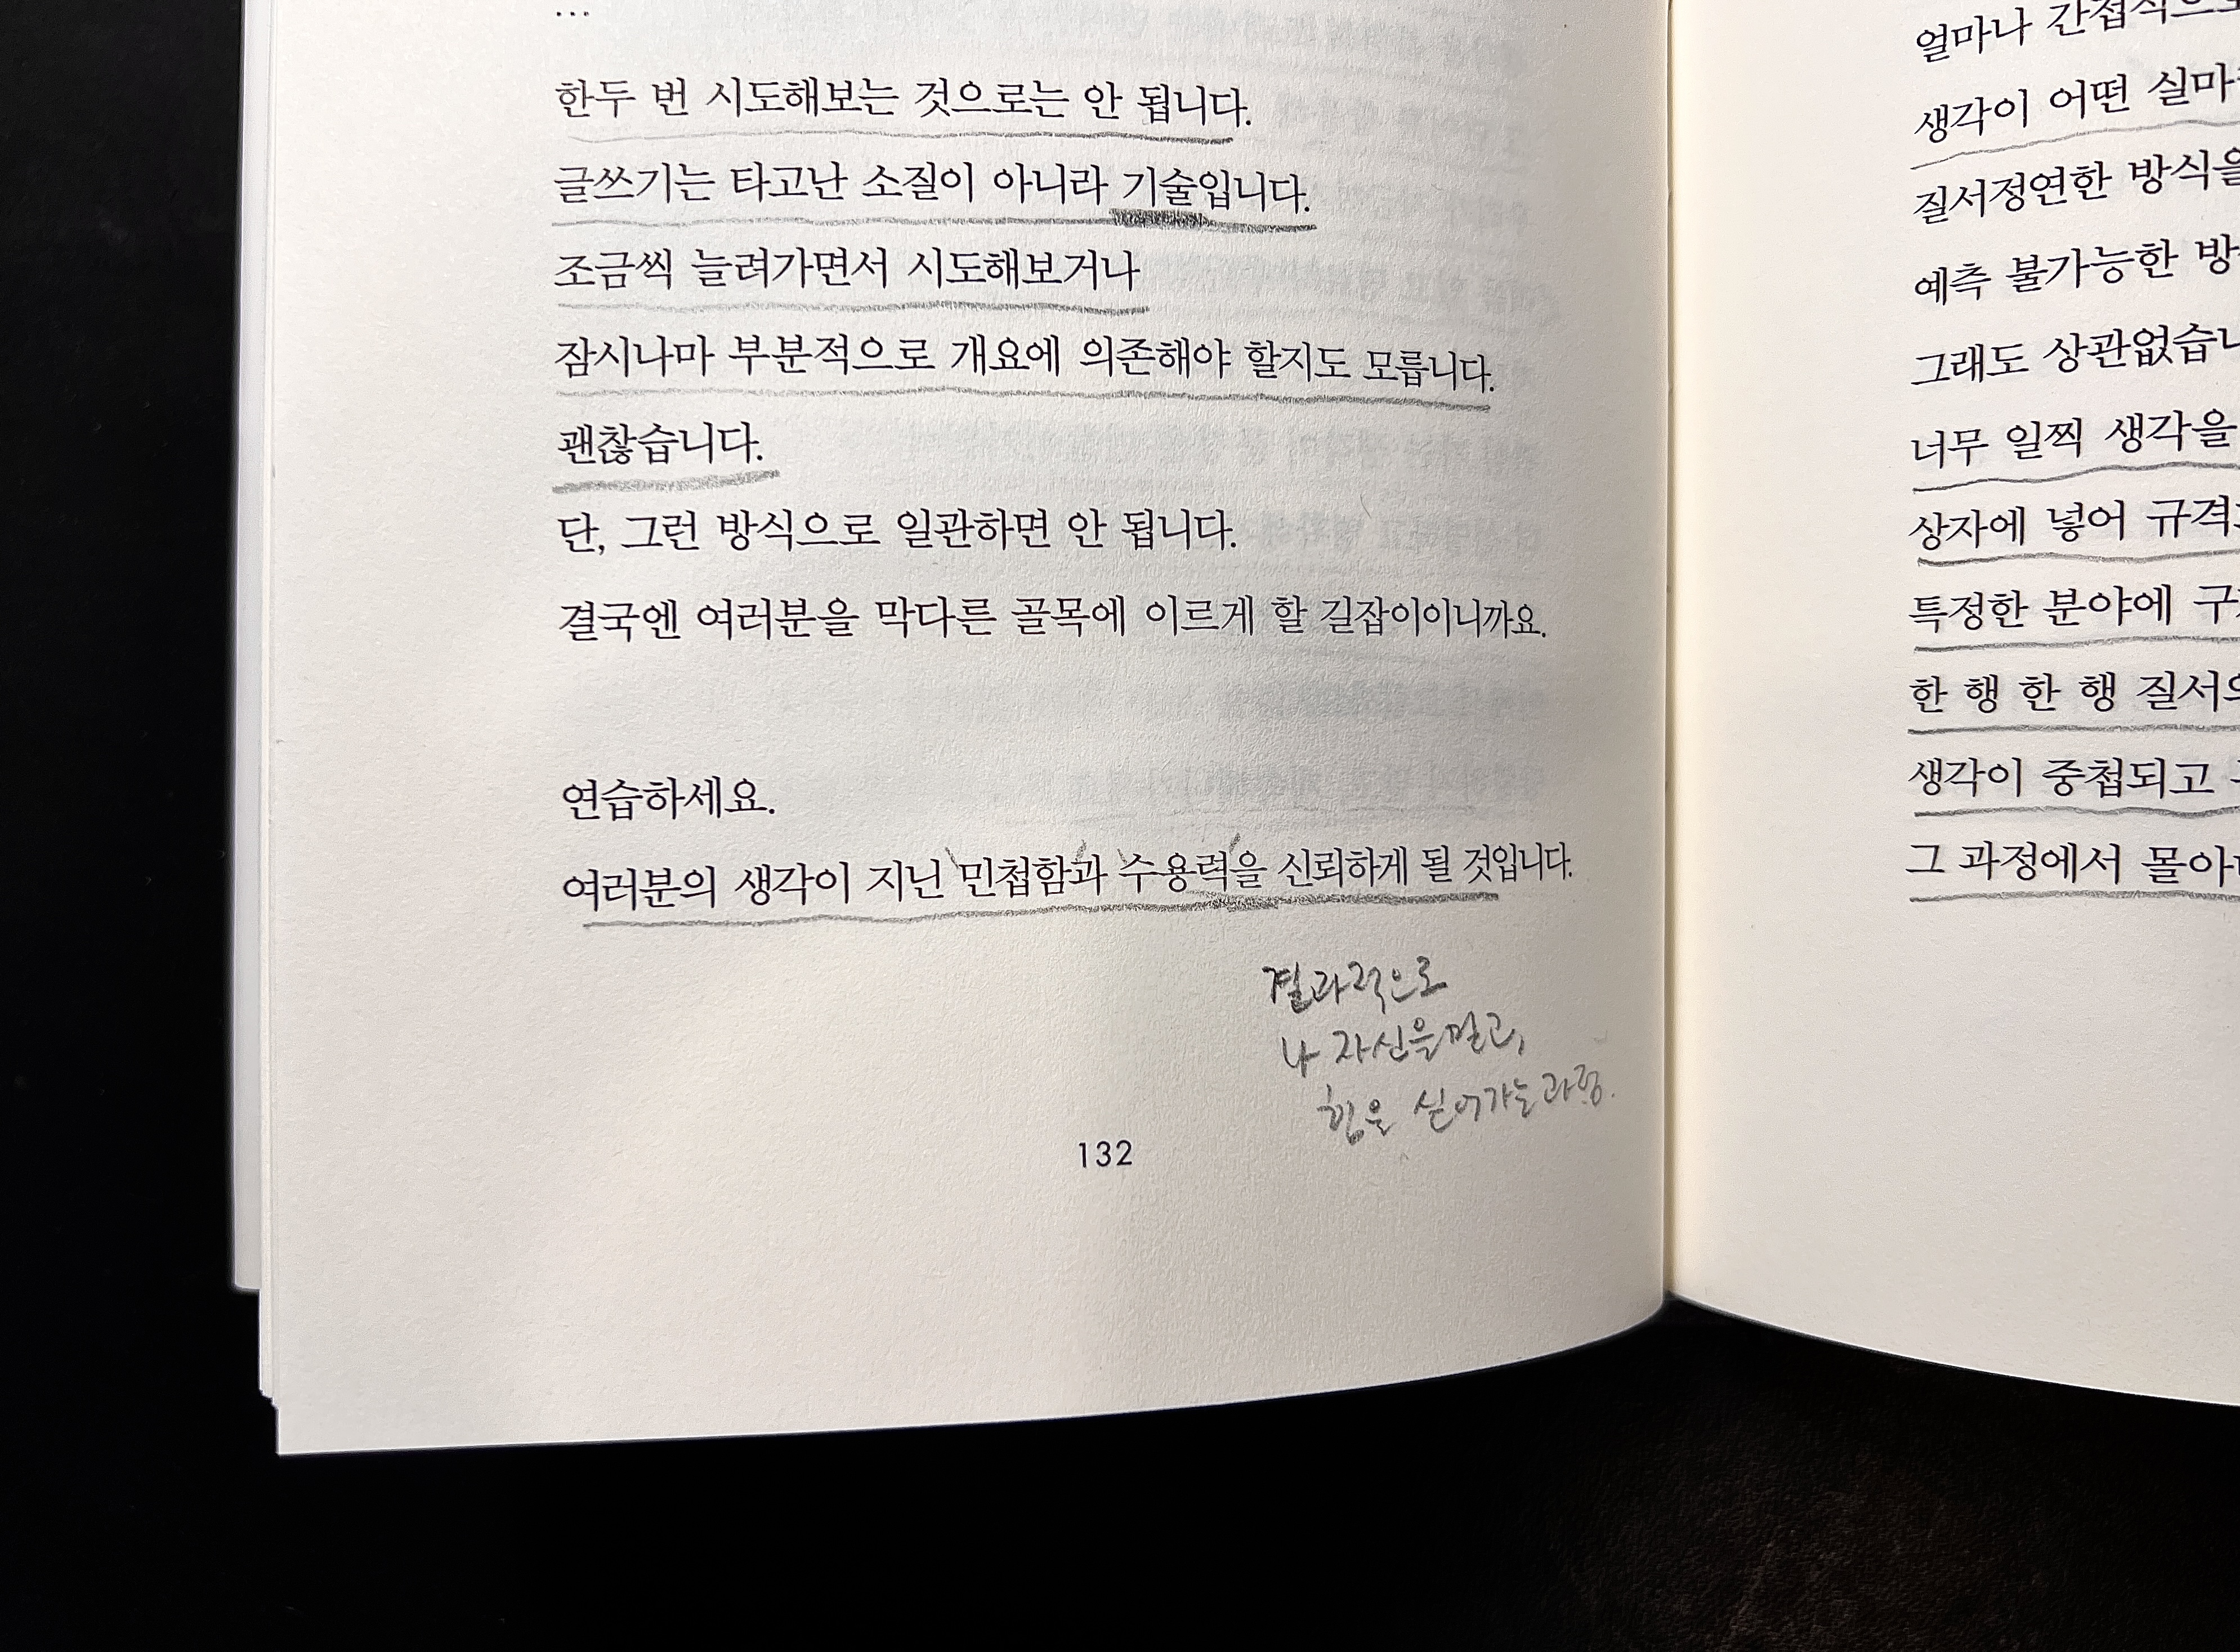 ...
한두 번 시도해보는 것으로는 안 됩니다.
글쓰기는 타고난 소질이 아니라 기술입니다.
조금씩 늘려가면서 시도해보거나
잠시나마 부분적으로 개요에 의존해야 할지도 모릅니다.
괜찮습니다.
단, 그런 방식으로 일관하면 안 됩니다.
결국엔 여러분을 막다른 골목에 이르게 할 길잡이이니까요.
연습하세요.
여러분의 생각이 지닌 민첩함과 수용력을 신뢰하게 될 것입니다.
결과적으로
나 자신을 믿고,
힘을 실어가는 과정.
132
얼마나 간접적으로
생각이 어떤 실마
질서정연한 방식을
예측 불가능한 방
그래도 상관없습니
너무 일찍 생각을
상자에 넣어 규격
특정한 분야에
한 행 한 행 질서
생각이 중첩되고
그 과정에서 몰아